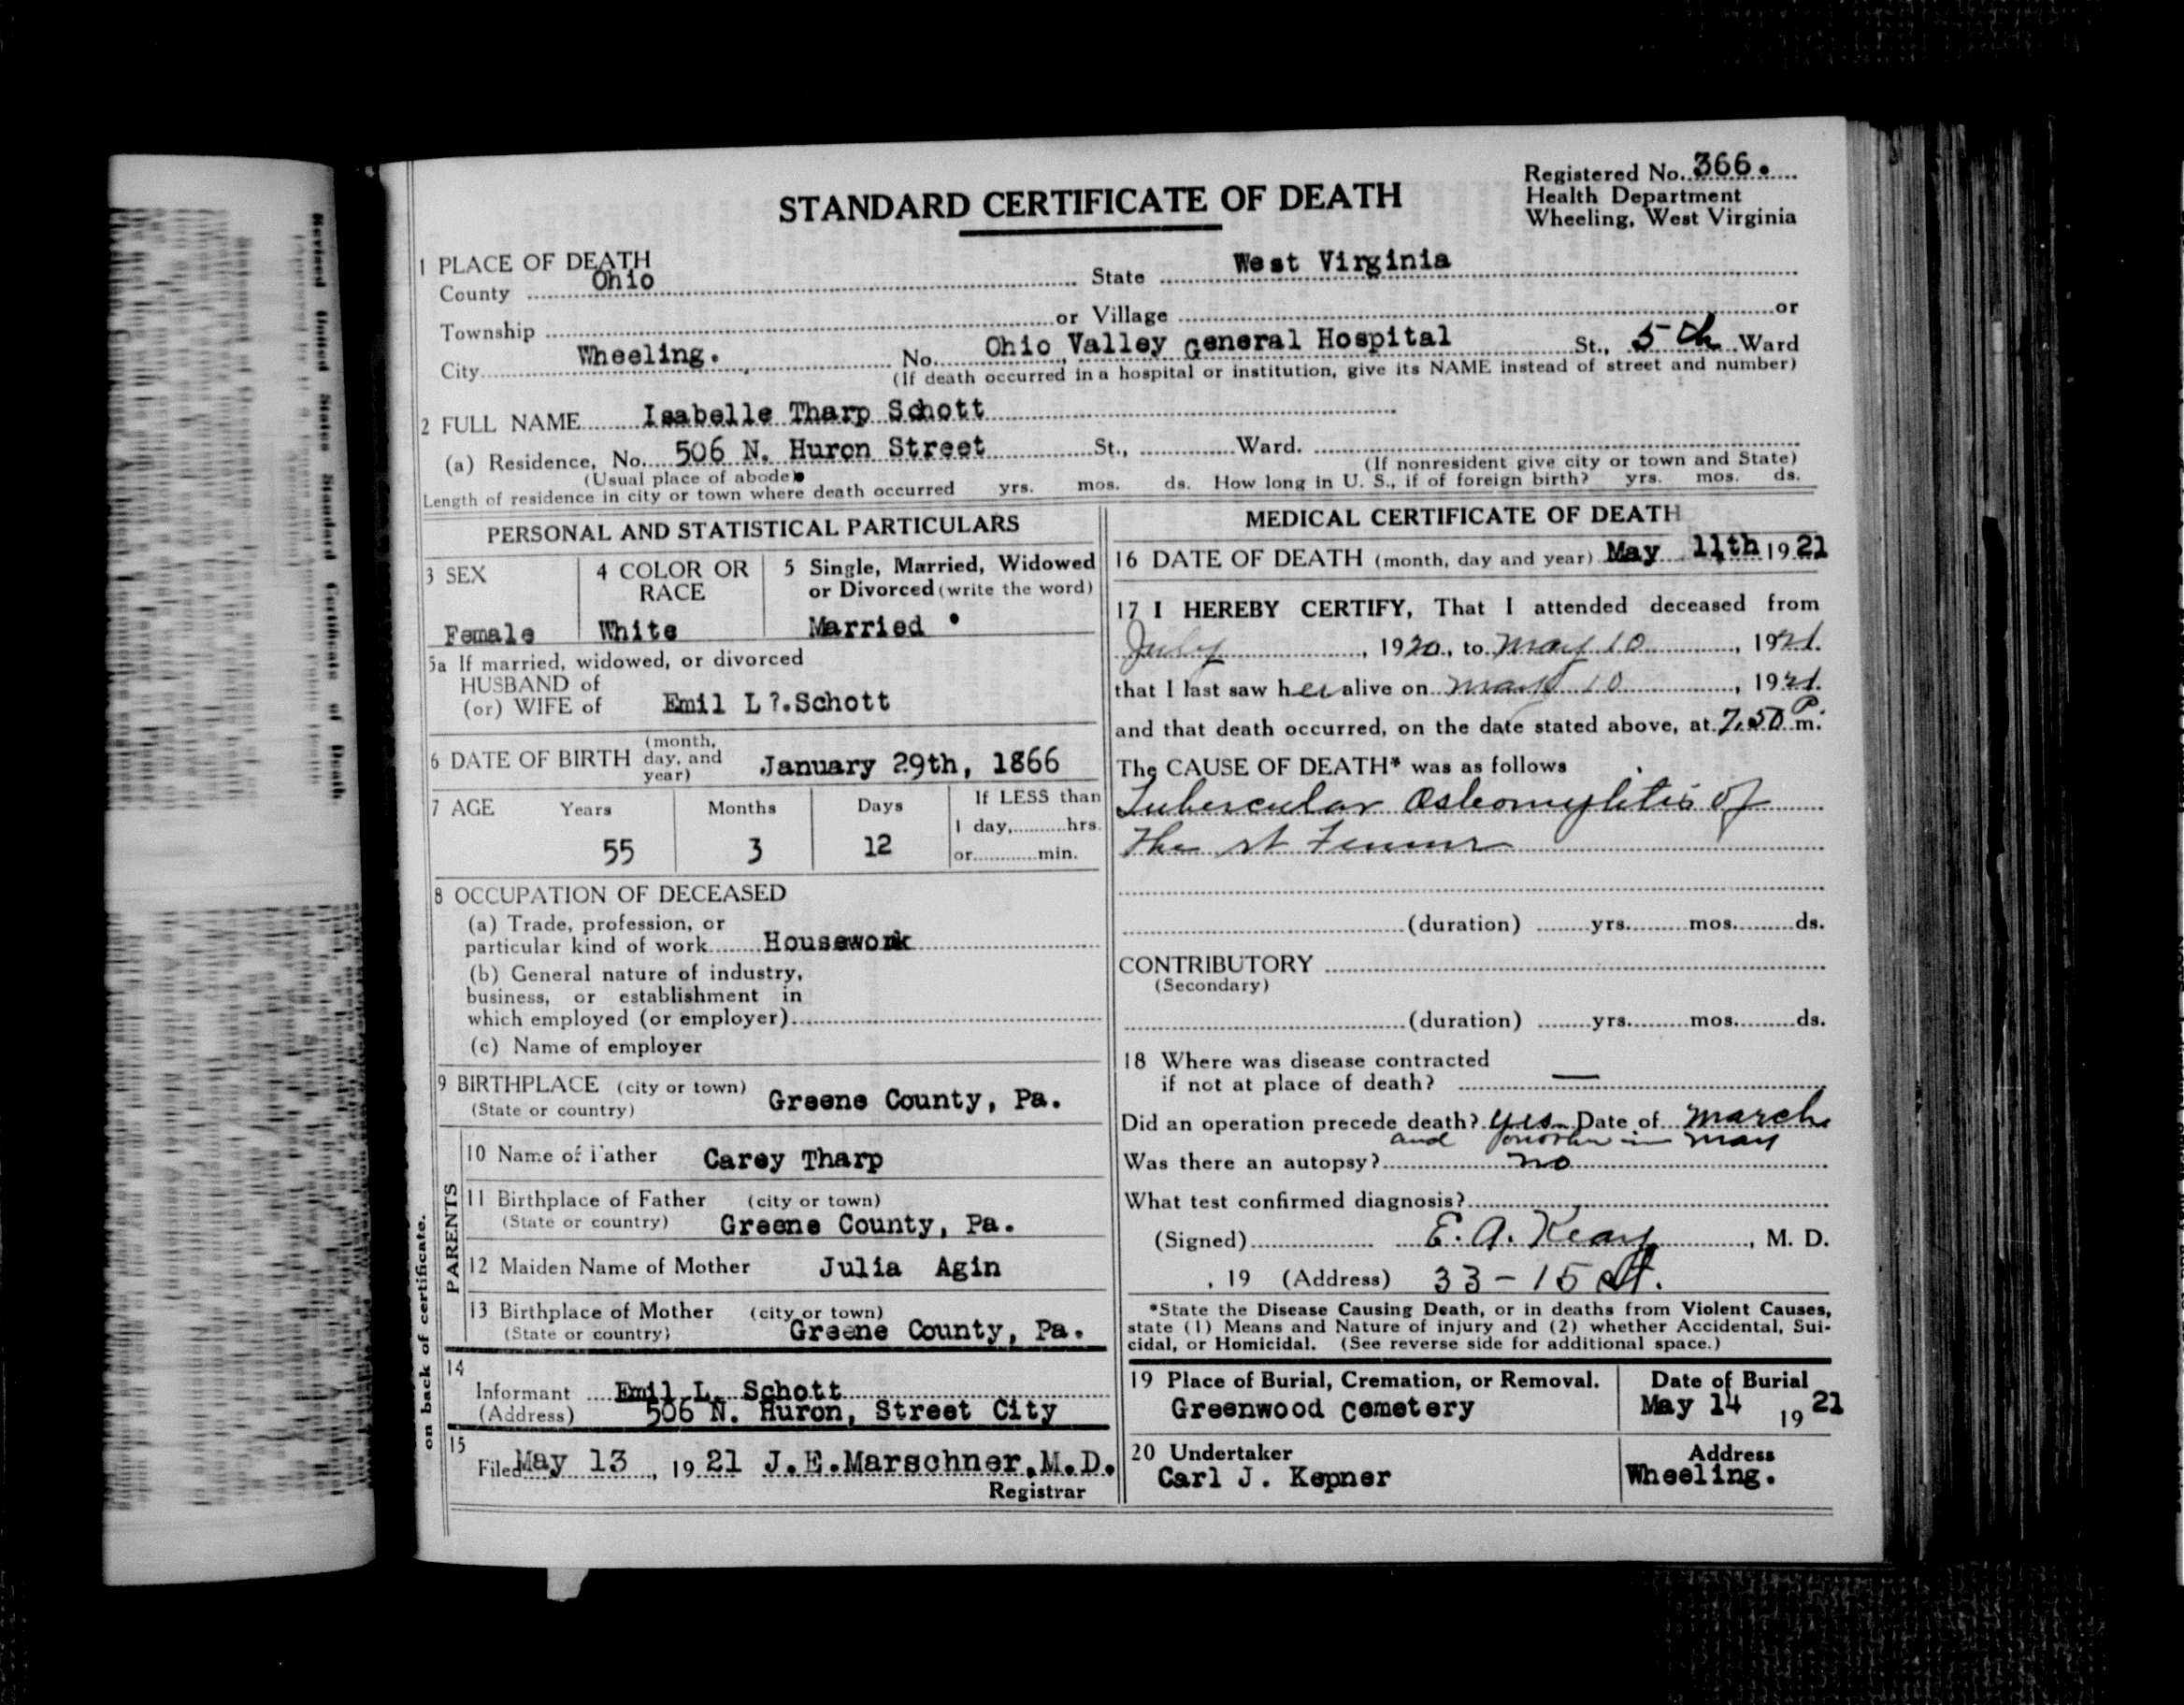 Registered No. 366.
Health Department
Wheeling, West Virginia
STANDARD CERTIFICATE OF DEATH
1 PLACE OF DEATH
County Ohio State West Virginia
Township or Village or
City Wheeling. No. Ohio Valley General Hospital St., 5th Ward
(If death occurred in a hospital or institution, give its NAME instead of street and number)
2 FULL NAME Isabelle Tharp Schott
(a) Residence, No. 506 N. Huron Street St., Ward.
(Usual place of abode) (If nonresident give city or town and State)
Length of residence in city or town where death occurred yrs. mos. ds. How long in U. S., if of foreign birth? yrs. mos. ds.
PERSONAL AND STATISTICAL PARTICULARS
3 SEX
Female
4 COLOR OR RACE
White
5 Single, Married, Widowed
or Divorced (write the word)
Married
5a If married, widowed, or divorced
HUSBAND of
(or) WIFE of Emil L?.Schott
6 DATE OF BIRTH (month, day, and year) January 29th, 1866
7 AGE Years Months Days If LESS than
1 day, hrs.
55 3 12 or min.
8 OCCUPATION OF DECEASED
(a) Trade, profession, or
particular kind of work Housework
(b) General nature of industry,
business, or establishment in
which employed (or employer)
(c) Name of employer
9 BIRTHPLACE (city or town) Greene County, Pa.
(State or country)
PARENTS
10 Name of Father Carey Tharp
11 Birthplace of Father (city or town)
(State or country) Greene County, Pa.
12 Maiden Name of Mother Julia Agin
13 Birthplace of Mother (city or town)
(State or country) Greene County, Pa.
14
Informant Emil L. Schott
(Address) 506 N. Huron, Street City
15
Filed May 13, 1921 J.E.Marschner,M.D.
Registrar
MEDICAL CERTIFICATE OF DEATH
16 DATE OF DEATH (month, day and year) May 11th 1921
17 I HEREBY CERTIFY, That I attended deceased from
July, 1920, to May 10, 1921.
that I last saw her alive on May 10, 1921.
and that death occurred, on the date stated above, at 7.50 P m.
The CAUSE OF DEATH* was as follows
Tubercular Osteomylitis of
the rt Femur
(duration) yrs. mos. ds.
CONTRIBUTORY
(Secondary)
(duration) yrs. mos. ds.
18 Where was disease contracted
if not at place of death? —
Did an operation precede death? yes Date of March
and another in May
Was there an autopsy? no
What test confirmed diagnosis?
(Signed) E. A. , M. D.
, 19 (Address) 33 - 15 St.
*State the Disease Causing Death, or in deaths from Violent Causes,
state (1) Means and Nature of injury and (2) whether Accidental, Sui-
cidal, or Homicidal. (See reverse side for additional space.)
19 Place of Burial, Cremation, or Removal.
Greenwood Cemetery
Date of Burial
May 14 1921
20 Undertaker
Carl J. Kepner
Address
Wheeling.
on back of certificate.
Revised United States Standard Certificate of Death